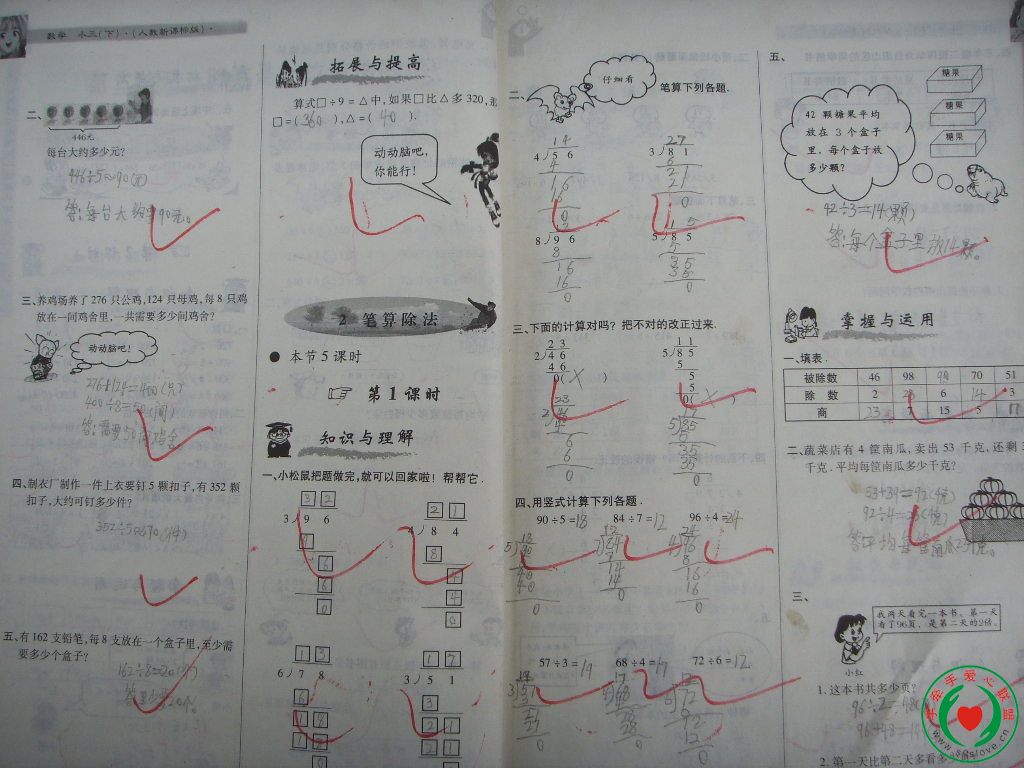 数学 小三(下)·(人教新课标版)·
二、
446元
每台大约多少元?
446÷5≈90(元)
答:每台大约90元。
三、养鸡场养了 276 只公鸡,124 只母鸡,每 8 只鸡
放在一间鸡舍里,一共需要多少间鸡舍?
动动脑吧!
276+124=400(只)
400÷8=50(间)
答:需要50间鸡舍
四、制衣厂制作一件上衣要钉 5 颗扣子,有 352 颗
扣子,大约可钉多少件?
352÷5≈70(件)
五、有 162 支铅笔,每 8 支放在一个盒子里,至少需
要多少个盒子?
162÷8≈20(个)
拓展与提高
算式□÷9=△中,如果□比△多 320,那
□=(360),△=(40).
动动脑吧,
你能行!
2 笔算除法
● 本节 5 课时
第 1 课时
知识与理解
一、小松鼠把题做完,就可以回家啦! 帮帮它.
3 2
3)9 6
9
6
6
0
2 1
4)8 4
8
4
4
0
1 3
6)7 8
6
1 8
1 8
1 7
3)5 1
3
2 1
2 1
二、
仔细看
笔算下列各题.
14
4)5 6
4
16
16
0
27
3)8 1
6
21
21
0
8)9 6
8
16
16
0
1 5
5)8 5
5
35
35
0
三、下面的计算对吗? 把不对的改正过来.
2 3
2)4 6
4 6
0(×)
23
6
6
0
1 1
5)8 5
5
5
5
0(×)
17
5)85
5
35
35
0
四、用竖式计算下列各题.
90÷5=18 84÷7=12 96÷4=24
57÷3=19 68÷4=17 72÷6=12
五、
糖果
糖果
糖果
42 颗糖果平均
放在 3 个盒子
里,每个盒子放
多少颗?
42÷3=14(颗)
答:每个盒子里放14颗。
掌握与运用
一、填表.
被除数 46 98 90 70 51
除 数 2 6 14 3
商 23 7 15 5 17
二、蔬菜店有 4 筐南瓜,卖出 53 千克,还剩
千克.平均每筐南瓜多少千克?
53+39=92(千克)
92÷4=23(千克)
三、
我两天看完一本书,第一天
看了96页,是第二天的2倍.
小红
1. 这本书共多少页?
96÷2=48
96+48=14
2. 第一天比第二天多看多少
手牵手爱心联盟
www.sqslove.cn